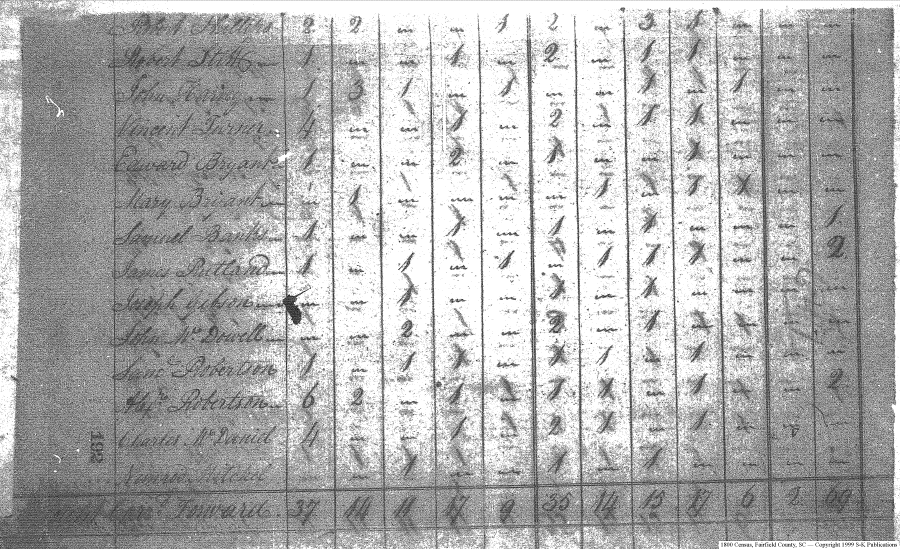 Robert 2 2 — — 1 2 — 3 1 — — —
Robert Stitt 1 — — 1 — 2 — 1 1 — — —
John 1 3 1 — 1 — — 1 — 1 — —
Vincent Turner 4 — — 1 — 2 — 1 1 — — —
Edward Bryant 1 — — 2 — 1 — — 1 — — —
Mary Bryant — 1 — — — — 1 — 1 — —
Samuel Banks 1 — — 1 — 1 — 1 — — — 1
James Rutland 1 — 1 — 1 — 1 1 1 — — 2
Joseph Gibson — — 1 — — 1 — 1 — — —
John McDowell — — 2 — — 2 — 1 — — —
Saml Robertson 1 — 1 1 — 1 1 — 1 — — —
Robertson 6 2 — 1 — 1 1 — 1 — — 2
Charles McDaniel 4 — — 1 — 2 — — 1 — —
Nimrod Mitchel — — 1 — — 1 — 1 — — — —
Forward 37 14 11 17 9 35 14 15 17 6 2 69
192
1800 Census, Fairfield County, SC — Copyright 1999 S-K Publications